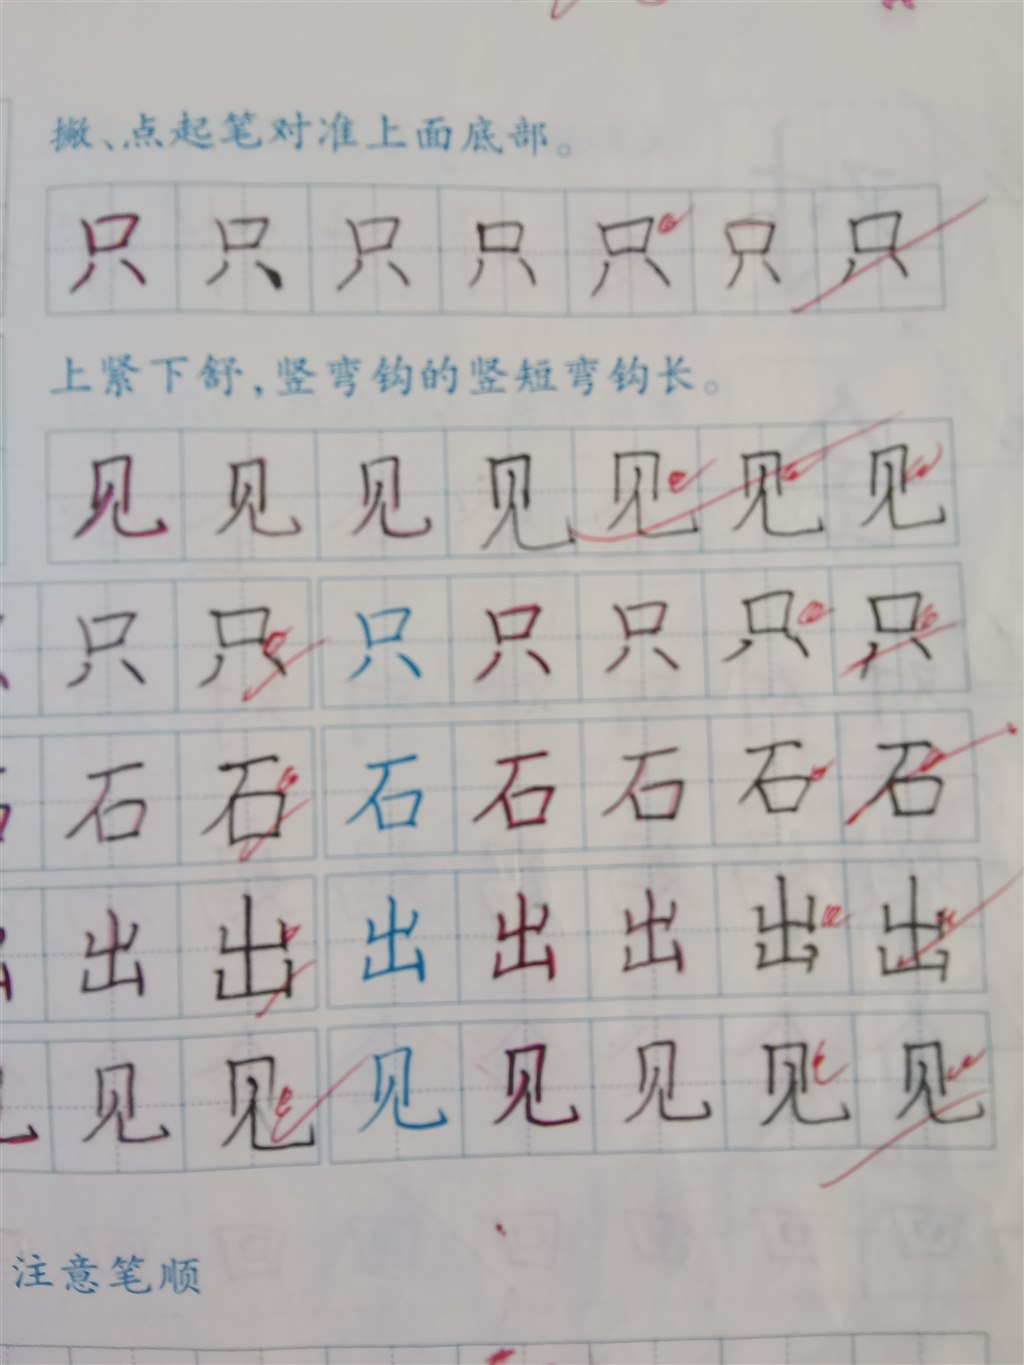 撇、点起笔对准上面底部。
只只只只只只只
上紧下舒,竖弯钩的竖短弯钩长。
见见见见见见见
只只只只只只只
石石石石石石石
出出出出出出出
见见见见见见见
注意笔顺